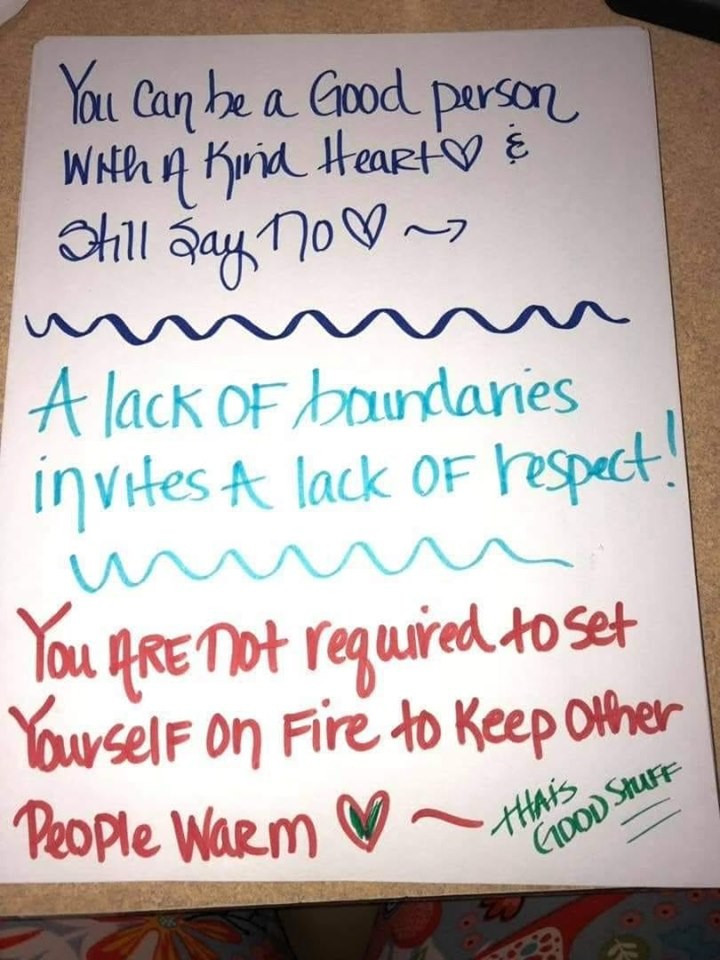 You Can be a Good person
With A Kind Heart♡ &
Still Say No♡ ~>
A lack OF boundaries
invites A lack OF respect!
You ARE Not required to set
Yourself On Fire to Keep Other
People Warm ♡ ~
tHAts
GOOD StuFF